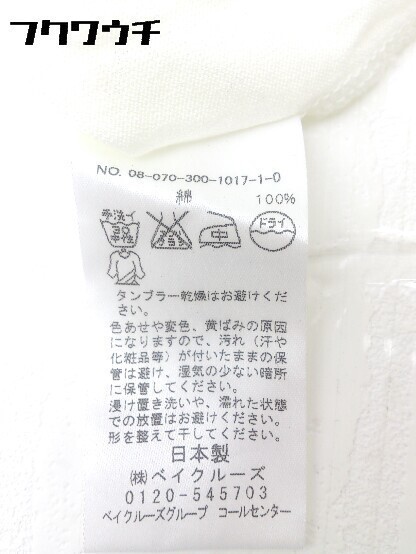 フクワウチ
NO. 08-070-300-1017-1-0
綿 100%
手洗イ
30
中性
中
ドライ
タンブラー乾燥はお避けくだ
さい。
色あせや変色、黄ばみの原因
になりますので、汚れ（汗や
化粧品等）が付いたままの保
管は避け、湿気の少ない暗所
に保管してください。
浸け置き洗いや、濡れた状態
での放置はお避けください。
形を整えて干してください。
日本製
㈱ベイクルーズ
0120-545703
ベイクルーズグループ コールセンター